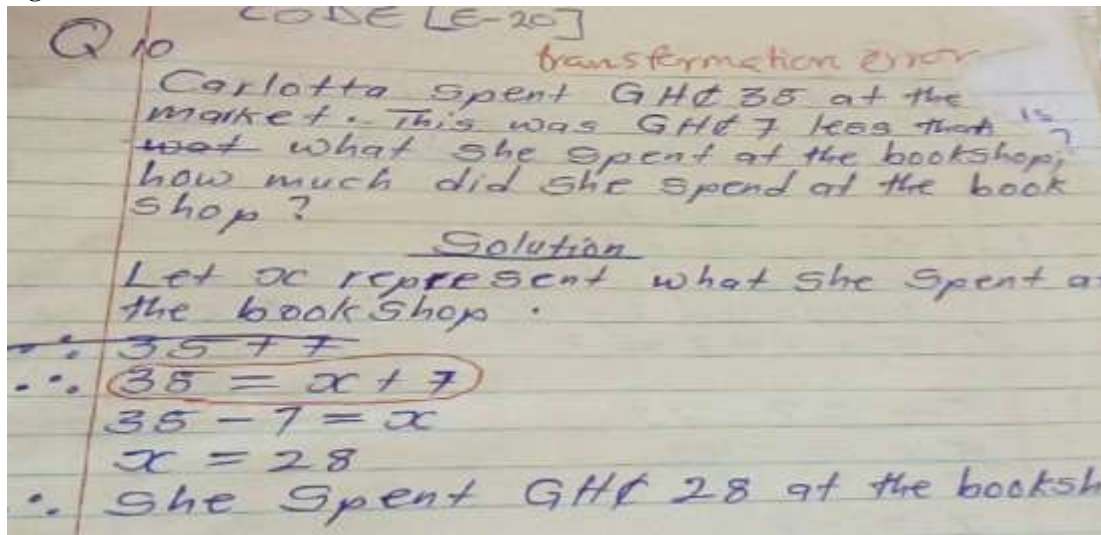 CODE [E-20]
Q 10
transformation error
Carlotta spent GH₵ 35 at the
market. This was GH₵ 7 less than is
wat what she spent at the bookshop, ?
how much did she spend at the book
shop?
Solution
Let x represent what she spent a
the bookshop.
∴ 35 + 7
∴ 35 = x + 7
35 - 7 = x
x = 28
∴ She Spent GH₵ 28 at the booksh